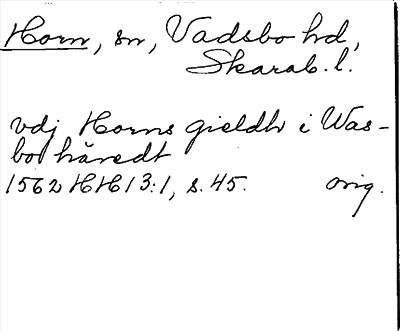 Horn, sn, Vadsbo hd,
Skarab. l.
vdj Horns gieldh i Was-
bo häredt
1562 HH 13:1, s. 45. orig.